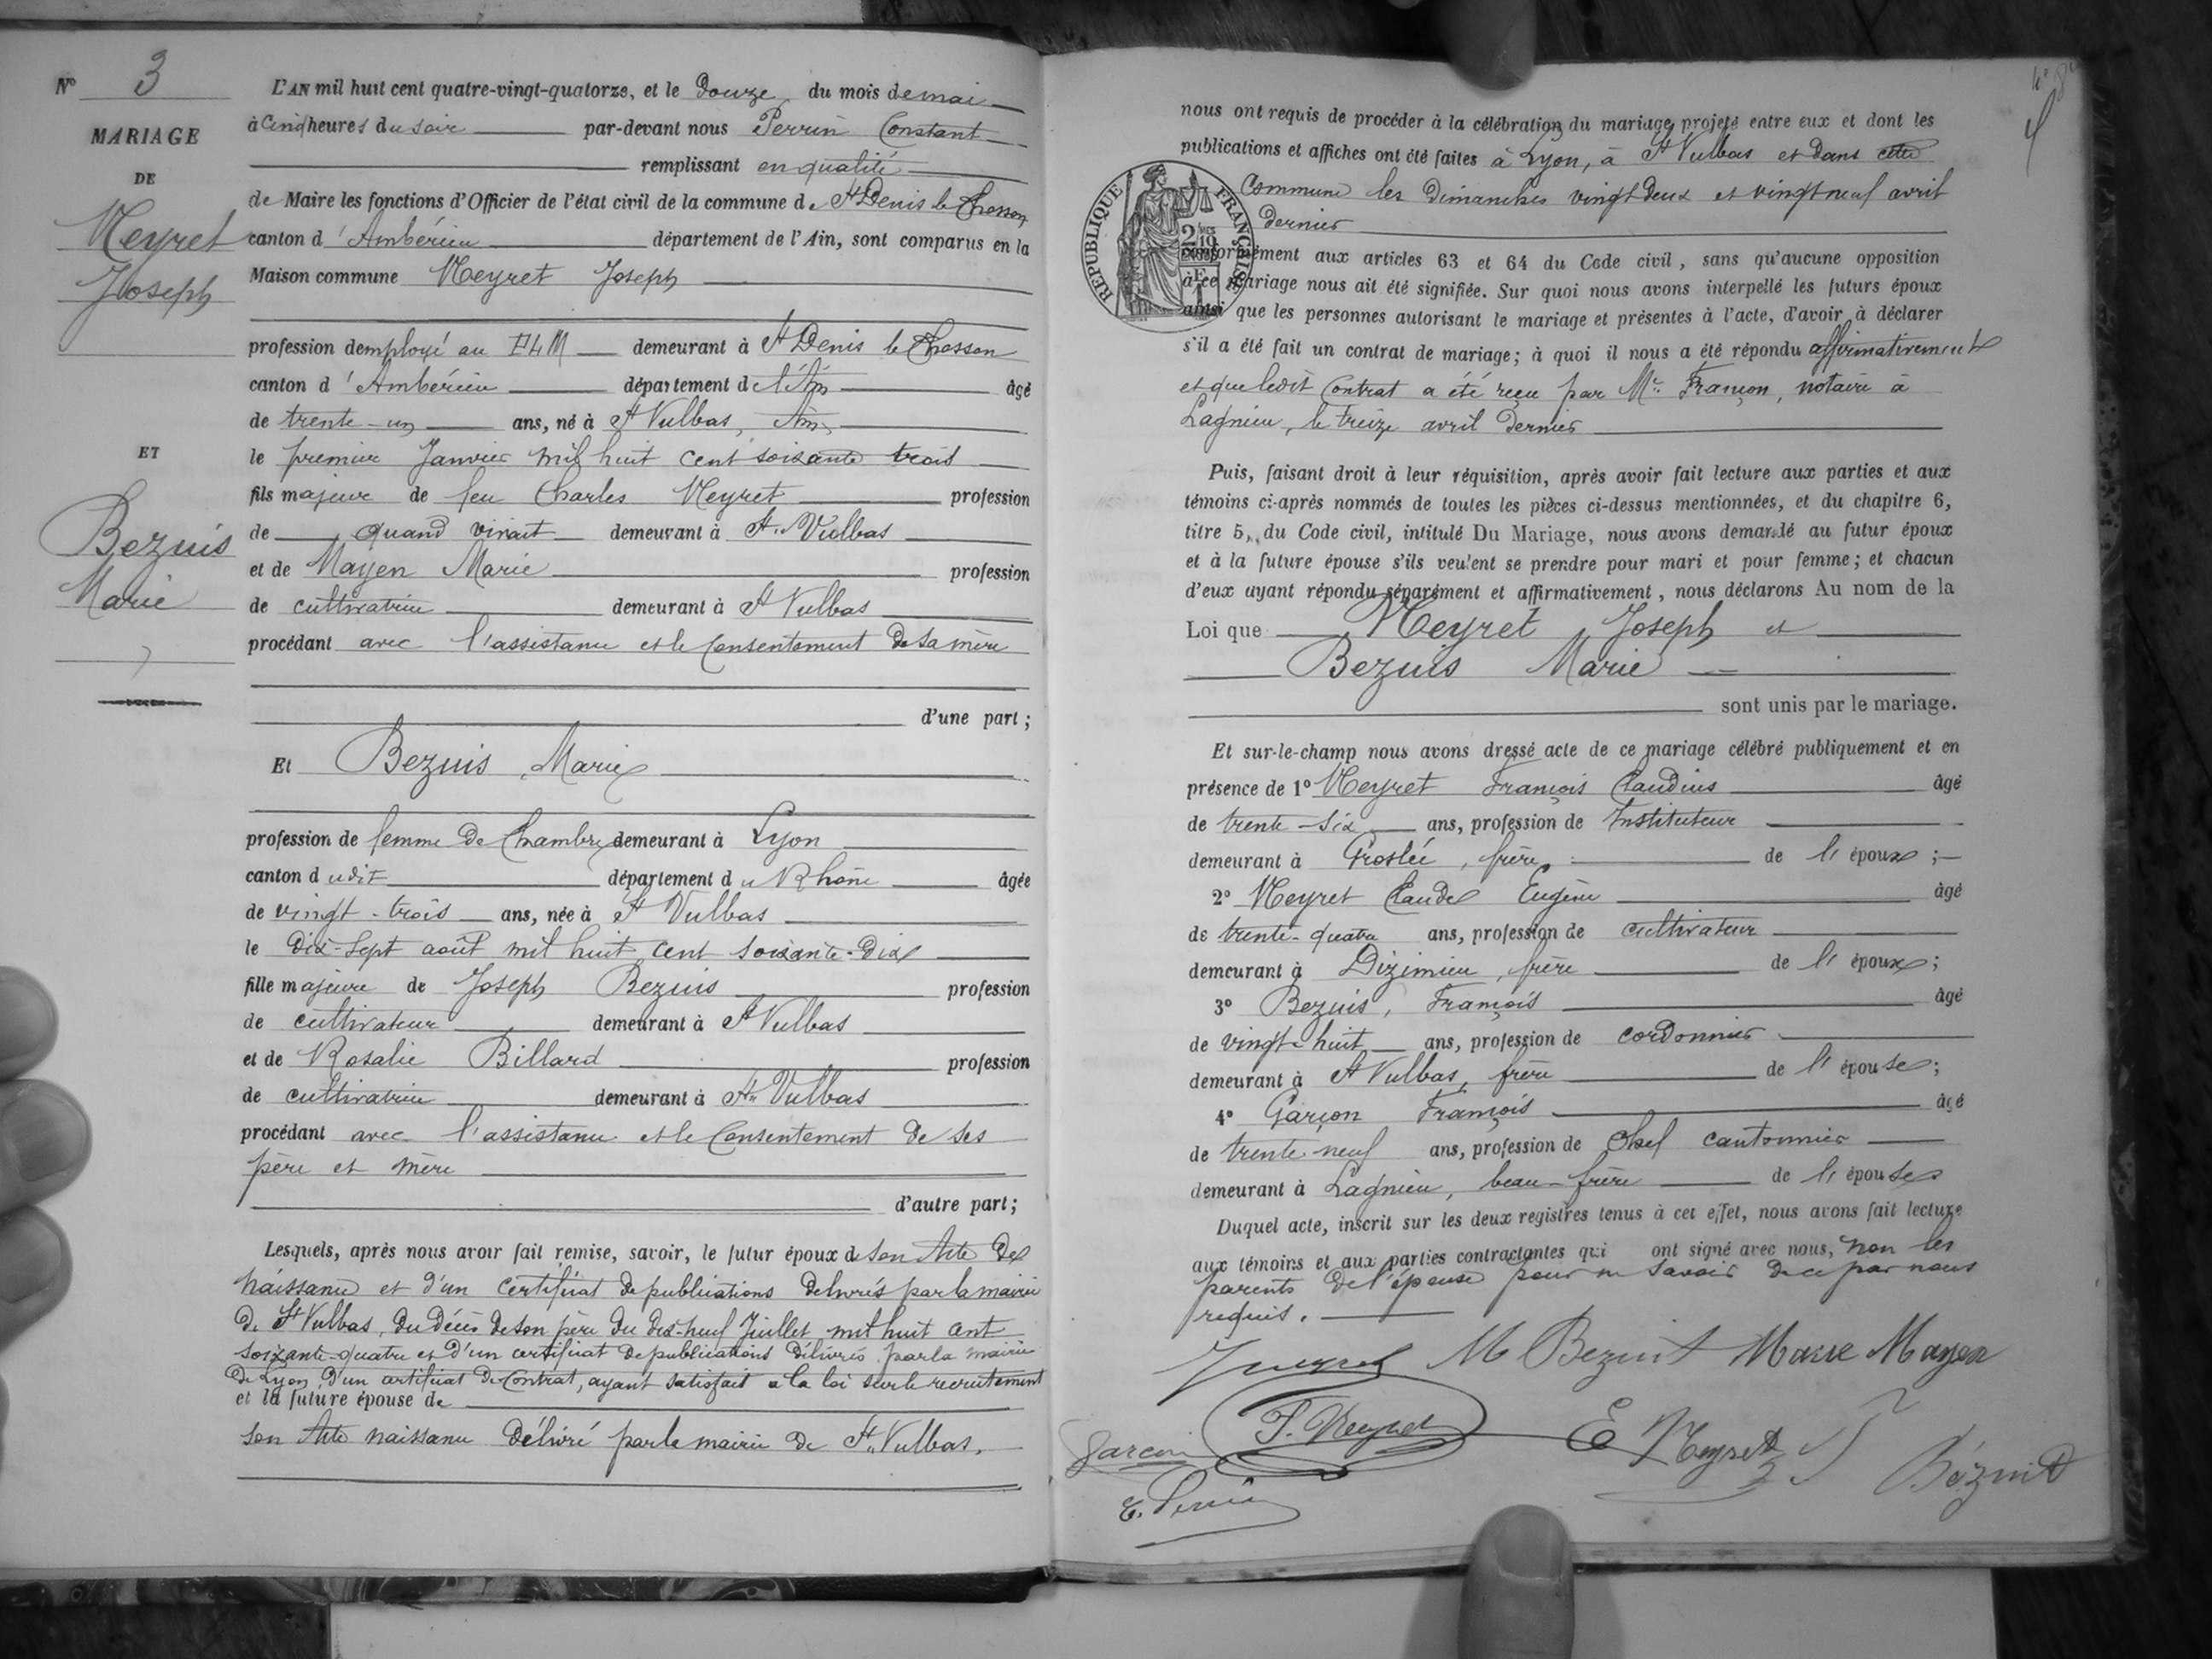 N° 3
MARIAGE
DE
Meyret
Joseph
ET
Bezuis
Marie
L'AN mil huit cent quatre-vingt-quatorze, et le douze du mois de mai
à cinq heures du soir par-devant nous Perrin Constant
remplissant en qualité
de Maire les fonctions d'Officier de l'état civil de la commune de St Denis le Chosson
canton d'Ambérieu département de l'Ain, sont comparus en la
Maison commune Meyret Joseph
profession d'employé au PLM demeurant à St Denis le Chosson
canton d'Ambérieu département de l'Ain âgé
de trente-un ans, né à St Vulbas, Ain,
le premier Janvier mil huit cent soixante trois
fils majeur de feu Charles Meyret profession
de quand vivait demeurant à St Vulbas
et de Mayen Marie profession
de cultivatrice demeurant à St Vulbas
procédant avec l'assistance et le consentement de sa mère
d'une part;
Et Bezuis, Marie
profession de femme de Chambre demeurant à Lyon
canton dudit département du Rhône âgée
de vingt-trois ans, née à St Vulbas
le dix-sept août mil huit cent soixante-dix
fille majeure de Joseph Bezuis profession
de cultivateur demeurant à St Vulbas
et de Rosalie Billard profession
de cultivatrice demeurant à St Vulbas
procédant avec l'assistance et le consentement de ses
père et mère
d'autre part;
Lesquels, après nous avoir fait remise, savoir, le futur époux de son Acte de
naissance et d'un certificat de publications délivrés par la mairie
de St Vulbas, du décès de son père du dix-neuf Juillet mil huit cent
soixante-quatre et d'un certificat de publications délivrés par la mairie
de Lyon, d'un certificat de contrat, ayant satisfait à la loi sur le recrutement
et la future épouse de
son Acte naissance délivré par la mairie de St Vulbas.
4
nous ont requis de procéder à la célébration du mariage projeté entre eux et dont les
publications et affiches ont été faites à Lyon, à St Vulbas et dans cette
Commune les dimanches vingt deux et vingt neuf avril
dernier
RÉPUBLIQUE FRANÇAISE
conformément aux articles 63 et 64 du Code civil, sans qu'aucune opposition
à ce mariage nous ait été signifiée. Sur quoi nous avons interpellé les futurs époux
ainsi que les personnes autorisant le mariage et présentes à l'acte, d'avoir à déclarer
s'il a été fait un contrat de mariage; à quoi il nous a été répondu affirmativement
et que ledit Contrat a été reçu par Me Françon, notaire à
Lagnieu, le treize avril dernier
Puis, faisant droit à leur réquisition, après avoir fait lecture aux parties et aux
témoins ci-après nommés de toutes les pièces ci-dessus mentionnées, et du chapitre 6,
titre 5, du Code civil, intitulé Du Mariage, nous avons demandé au futur époux
et à la future épouse s'ils veulent se prendre pour mari et pour femme; et chacun
d'eux ayant répondu séparément et affirmativement, nous déclarons Au nom de la
Loi que Meyret Joseph et
Bezuis Marie
sont unis par le mariage.
Et sur-le-champ nous avons dressé acte de ce mariage célébré publiquement et en
présence de 1° Meyret François Claudius âgé
de trente-six ans, profession de Instituteur
demeurant à Groslée, frère de l'époux;
2° Meyret Claude Eugène âgé
de trente-quatre ans, profession de cultivateur
demeurant à Dizimieu, frère de l'époux;
3° Bezuis, François âgé
de vingt-huit ans, profession de cordonnier
demeurant à St Vulbas, frère de l'épouse;
4° Garçon François âgé
de trente-neuf ans, profession de Chef cantonnier
demeurant à Lagnieu, beau-frère de l'épouse
Duquel acte, inscrit sur les deux registres tenus à cet effet, nous avons fait lecture
aux témoins et aux parties contractantes qui ont signé avec nous, non les
parents de l'épouse pour ne savoir de ce par nous
requis.
M Bezuit Marie Mayen
F. Meyret
E Meyret
Garçon
Bézuit
C. Perrin